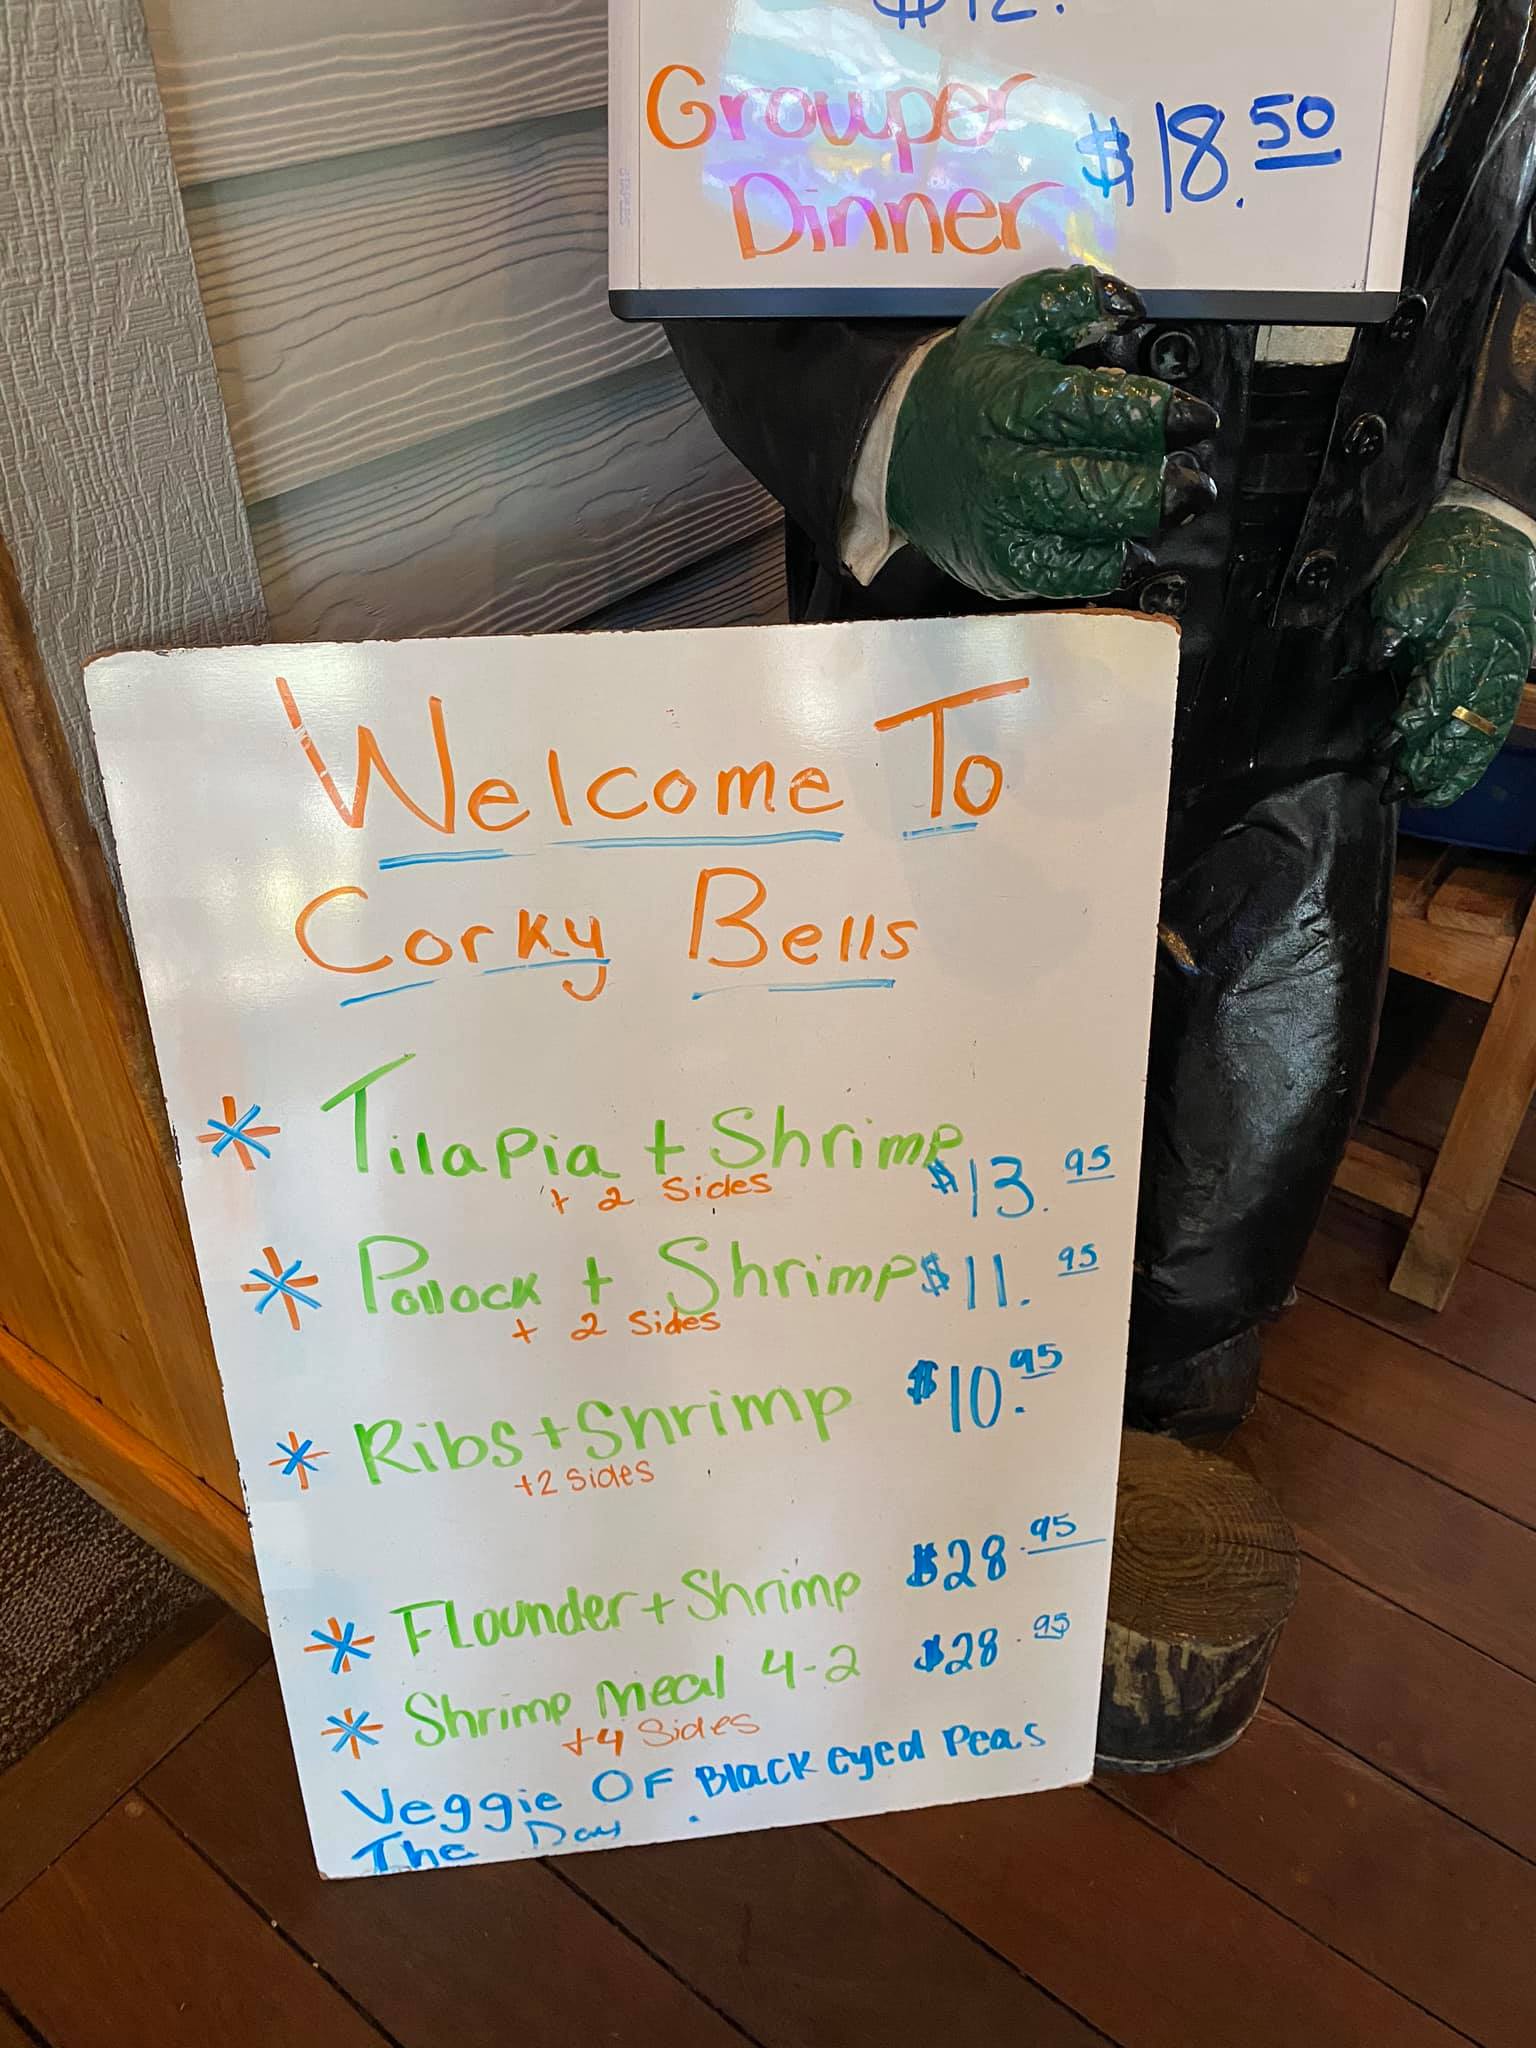 $12.
Grouper $18.50
Dinner
Welcome To
Corky Bells
* Tilapia + Shrimp
+ 2 Sides $13.95
* Pollock + Shrimp $11.95
+ 2 Sides
* Ribs + Shrimp $10.95
+2 sides
* Flounder + Shrimp $28.95
* Shrimp meal 4-2 $28.95
+4 Sides
Veggie OF Blackeyed Peas
The Day .